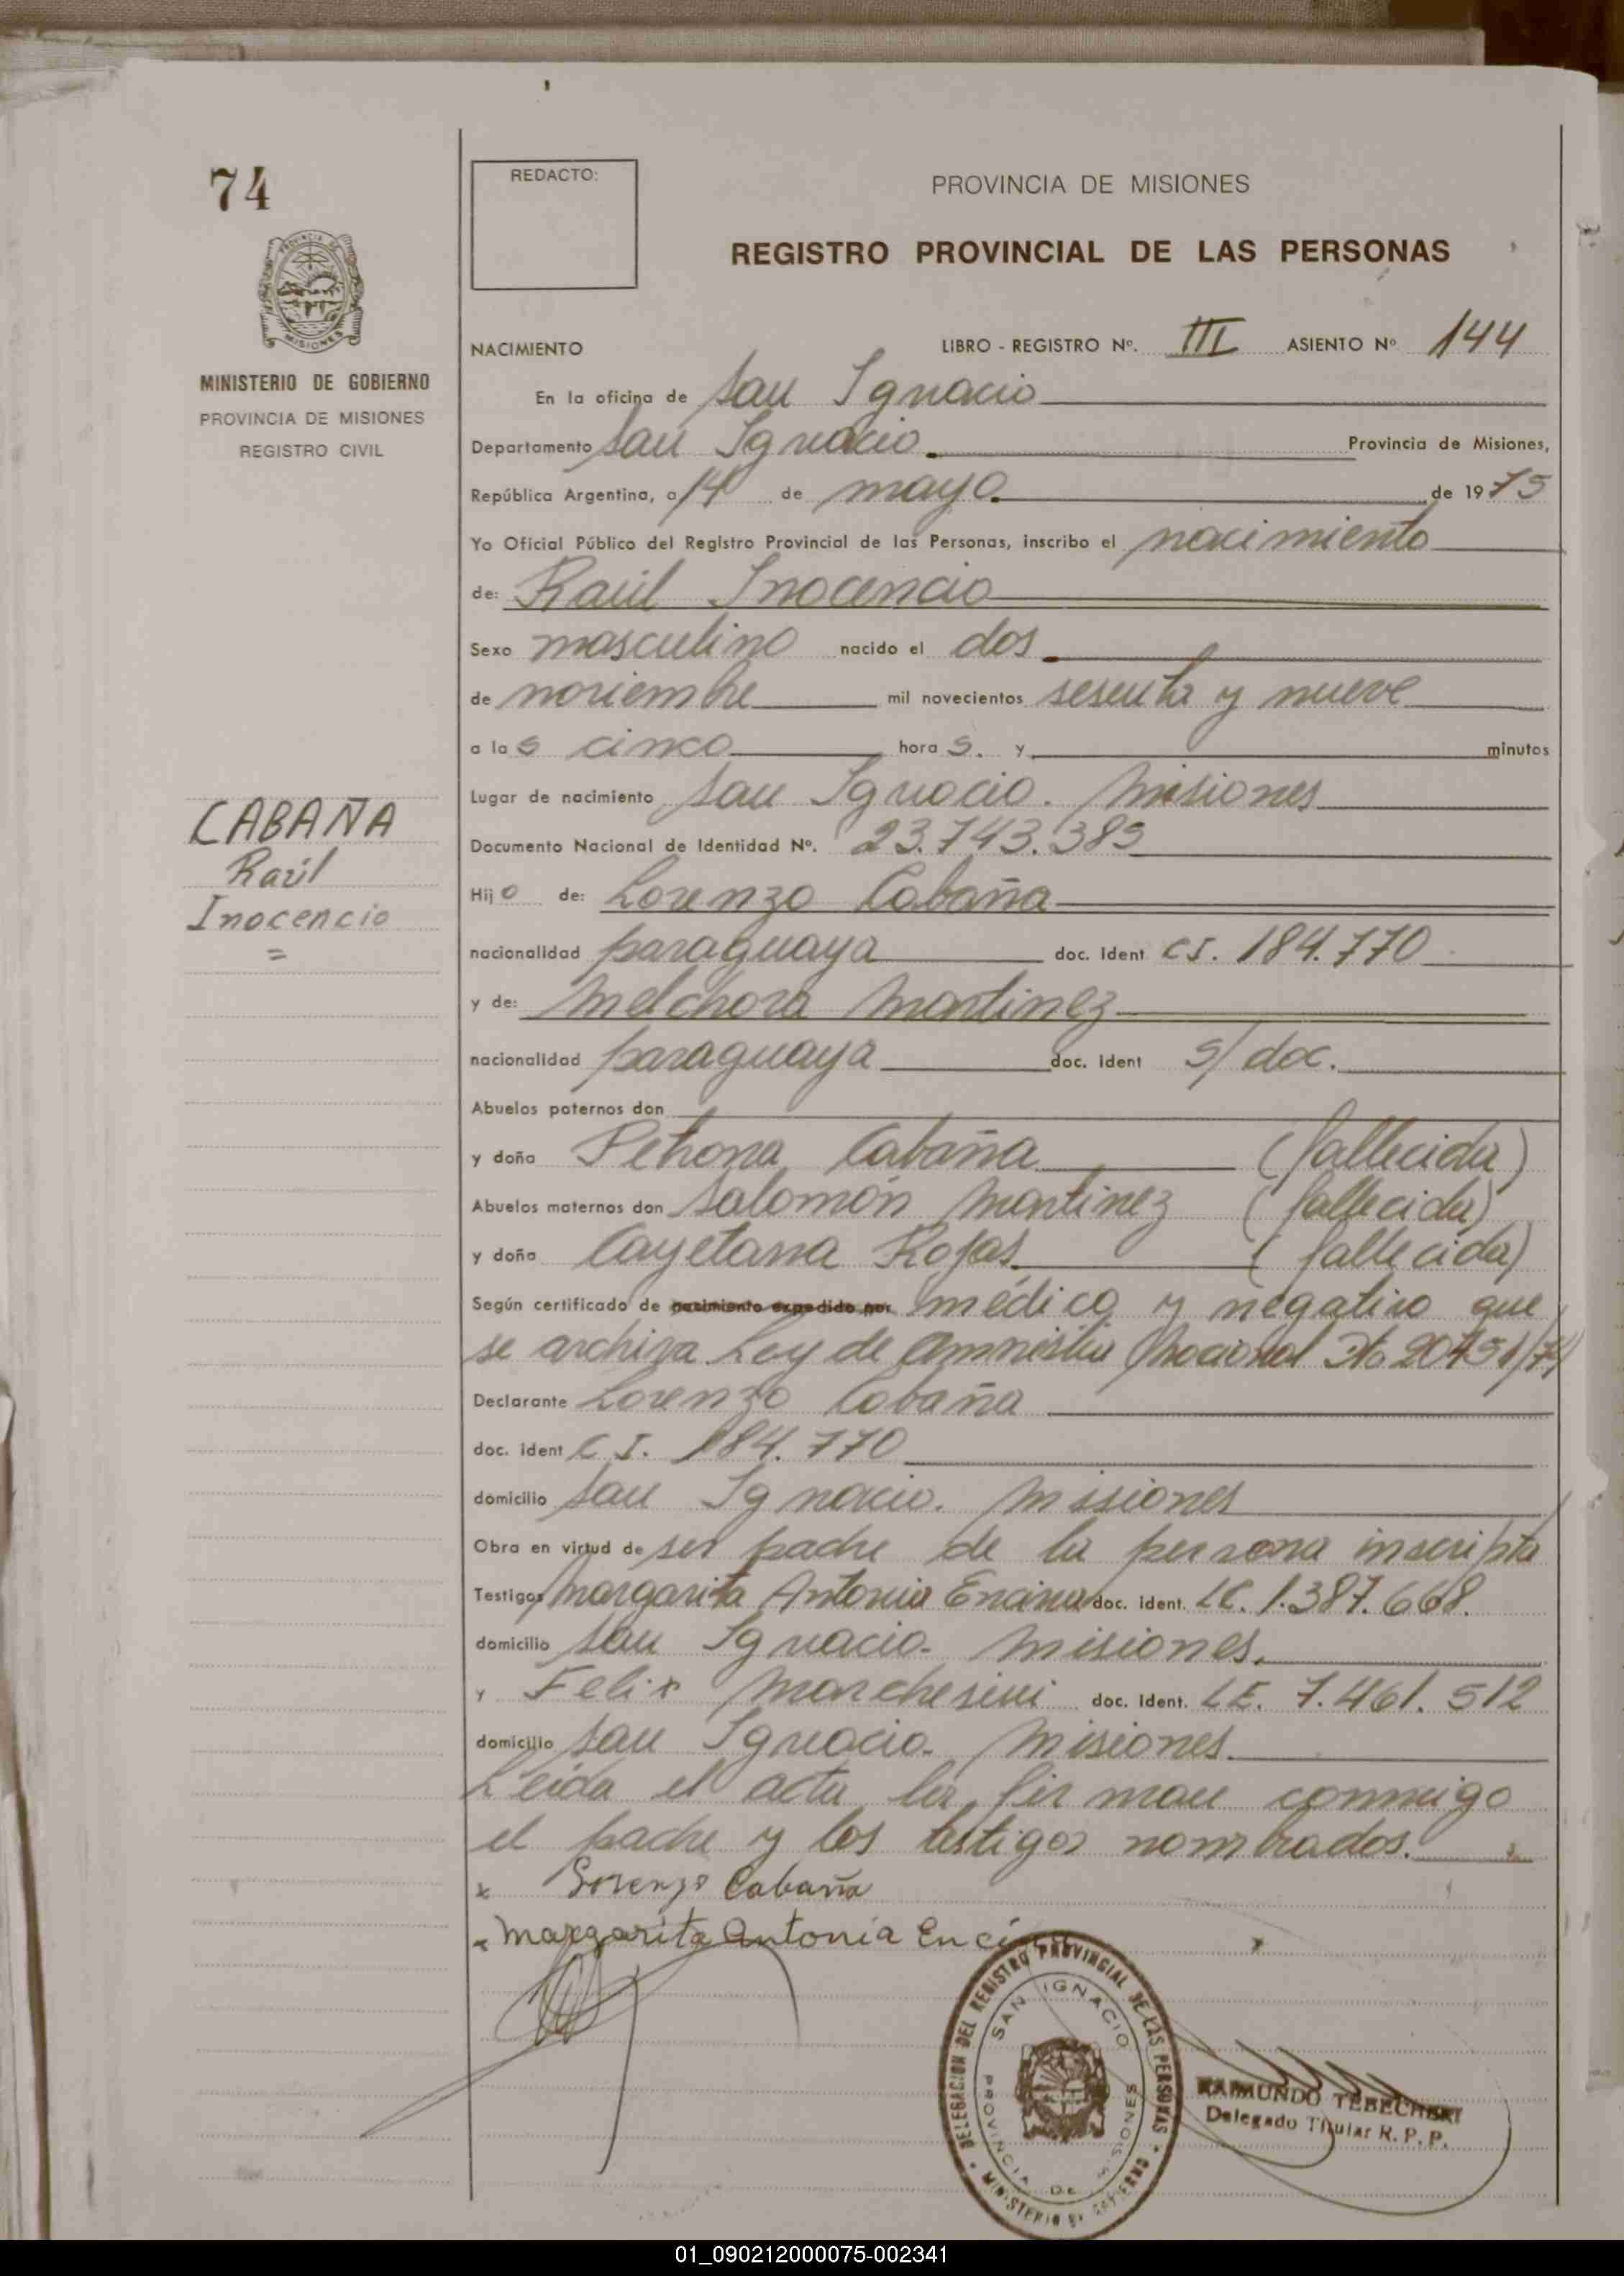 74
REDACTO:
PROVINCIA DE MISIONES
REGISTRO PROVINCIAL DE LAS PERSONAS
PROVINCIA DE MISIONES
MINISTERIO DE GOBIERNO
PROVINCIA DE MISIONES
REGISTRO CIVIL
NACIMIENTO LIBRO - REGISTRO Nº. III ASIENTO Nº 144
En la oficina de San Ignacio
Departamento San Ignacio. Provincia de Misiones,
República Argentina, a 14 de mayo de 1975
Yo Oficial Público del Registro Provincial de las Personas, inscribo el nacimiento
de: Raúl Inocencio
Sexo masculino nacido el dos
de noviembre mil novecientos sesenta y nueve
a las cinco horas. y minutos
Lugar de nacimiento San Ignacio. Misiones
CABAÑA
Raúl
Inocencio
=
Documento Nacional de Identidad Nº. 23.743.385
Hijo de: Lorenzo Cabaña
nacionalidad paraguaya doc. ident CI. 184.770
y de: Melchora Martinez
nacionalidad paraguaya doc. ident s/ doc.
Abuelos paternos don
y doña Petrona Cabaña (fallecida)
Abuelos maternos don Salomón Martinez (fallecida)
y doña Cayetana Rojas (fallecida)
Según certificado de nacimiento expedido por médico y negativo que
se archiva Ley de Amnistia Nacional No 20751/74
Declarante Lorenzo Cabaña
doc. ident C I. 184.770
domicilio San Ignacio. Misiones
Obra en virtud de ser padre de la persona inscripta
Testigos Margarita Antonia Encina doc. ident. LC. 1.387.668.
domicilio San Ignacio. Misiones.
y Felix Marchesini doc. ident. LE. 7.461.512
domicilio San Ignacio. Misiones.
Leida el acta la firman conmigo
el padre y los testigos nombrados.
x Lorenzo Cabaña
x Margarita Antonia Encina
DELEGACION DEL REGISTRO PROVINCIAL DE LAS PERSONAS
SAN IGNACIO
PROVINCIA DE MISIONES
MINISTERIO DE GOBIERNO
RAIMUNDO
Delegado Titular R. P. P.
01_090212000075-002341